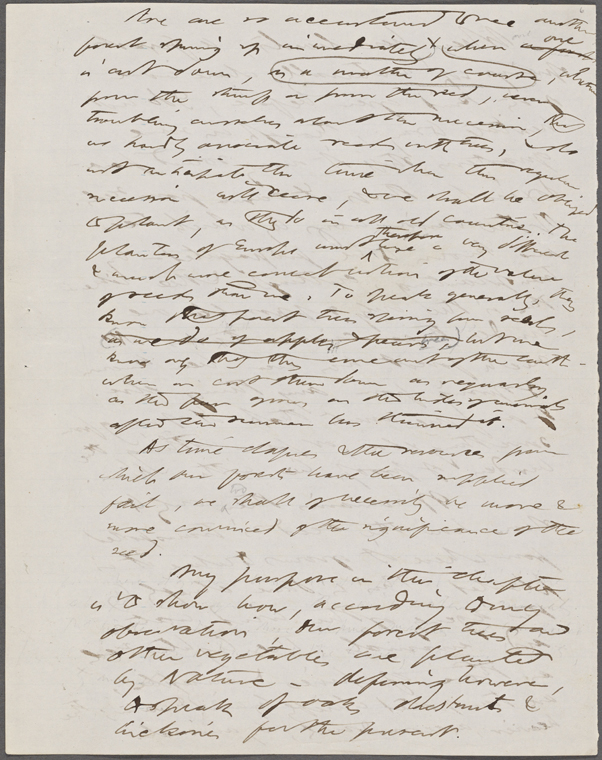 We are so accustomed to see another
forest spring up immediately when a forest one
is cut down, as a matter of course, whether
from the stump or from the seed, never
troubling ourselves about the succession, that
we hardly associate seeds with trees, & do
not anticipate the time when this regular
succession will cease, & we shall be obliged
to plant, as they do in all old countries. The
planters of Europe must therefore have a very different
& much more correct notion of the value
of seeds than we. To speak generally, they
know that forest trees spring from seeds,
as we do of apples & pears but we
know only that they come out of the earth
when we cut them down as regularly
as the fur grows on the hides of animals
after the summer has thinned it.
As time elapses & the resources from
which our forests have been supplied
fail, we shall of necessity be more &
more convinced of the significance of the
seed.
My purpose in this chapter
is to show how, according to my
observation, our forest trees and
other vegetables are planted
by Nature – deferring however,
to speak of oaks chestnuts &
hickories for the present.